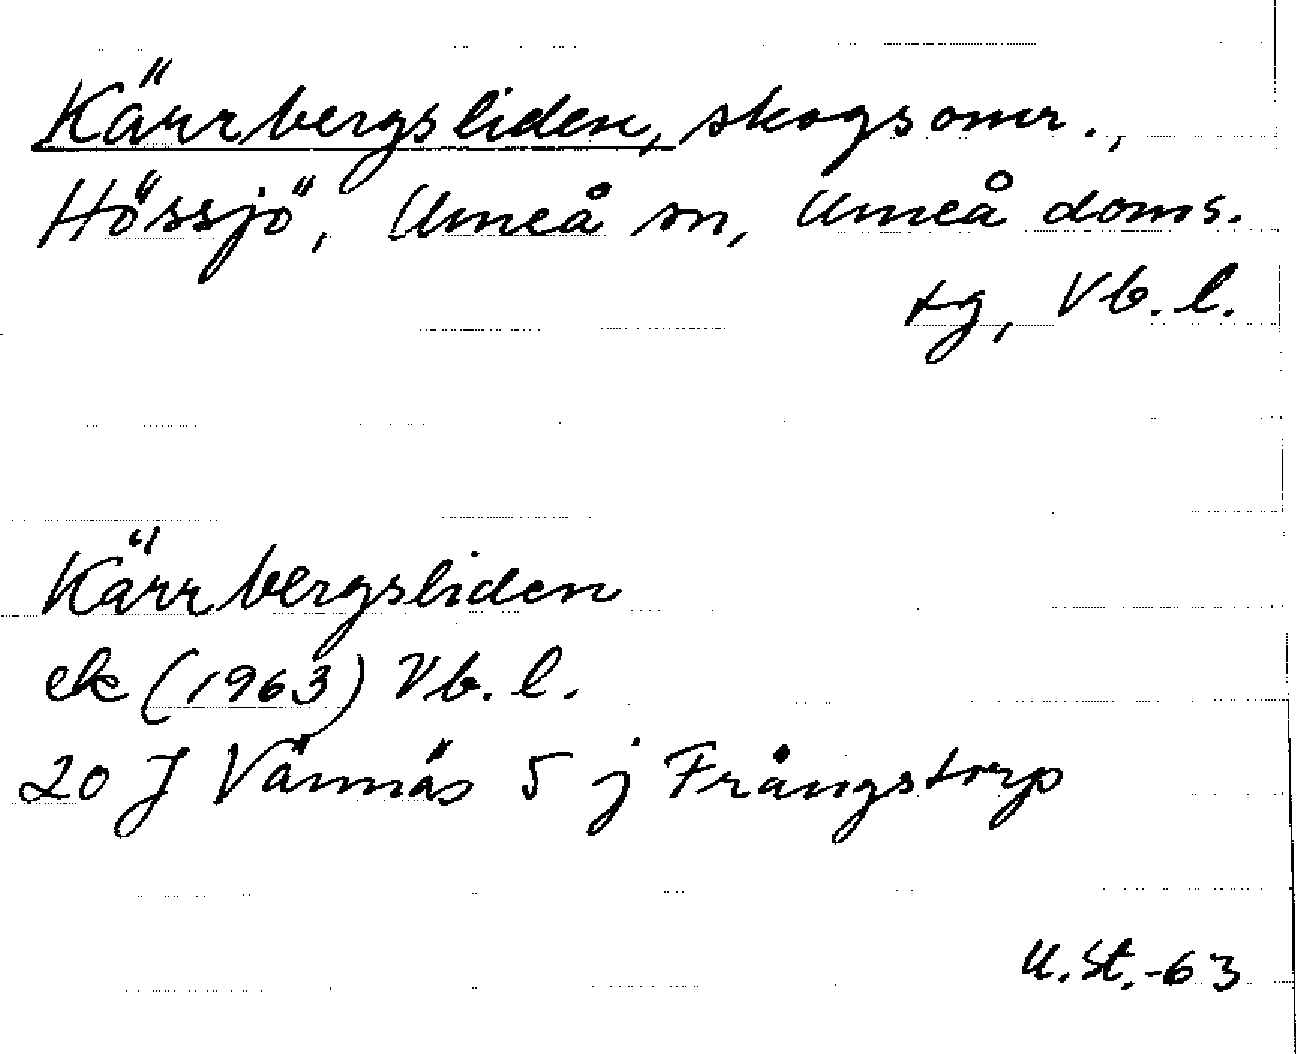 Kärrbergsliden, skogsomr.,
Hössjö, Umeå sn, Umeå doms.
tg, Vb. l.
Kärrbergsliden
ek (1963) Vb. l.
20 J Vännäs 5 j Frängstorp
U.St.-63